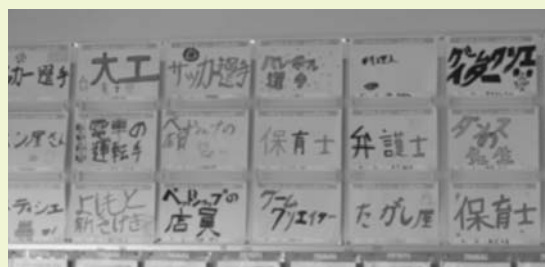 カー選手
大工
サッカー選手
バレーボール
選手
ゲームクリエ
イター
ン屋さん
電車の
運転手
ペットショップの
店員
保育士
弁護士
ダンス
の
先生
ティシエ
よしもと
新きげき
ペットショップの
店員
ゲーム
クリエイター
だがし屋
保育士